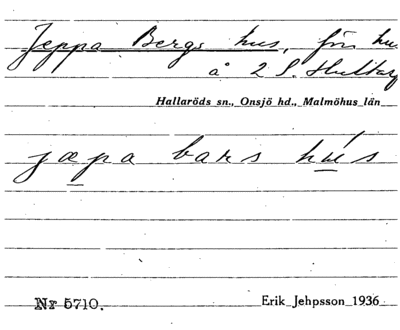 Jeppa Bergs hus, för hu
å 2 S. Hultarp
Hallaröds sn., Onsjö hd., Malmöhus län
jæpa bars hús
Nr 5710.
Erik Jehpsson 1936